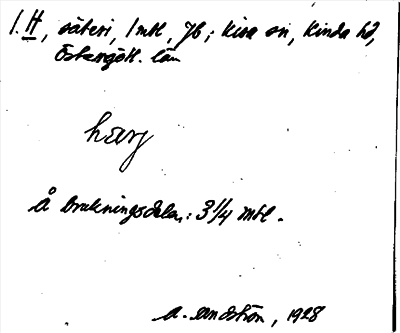 1. H, säteri, 1 mtl, Yb; Kisa sn, Kinda hd,
Östergötl. län
harg
Å brukningsdelar: 3 1/4 mtl.
A. Lindström, 1928